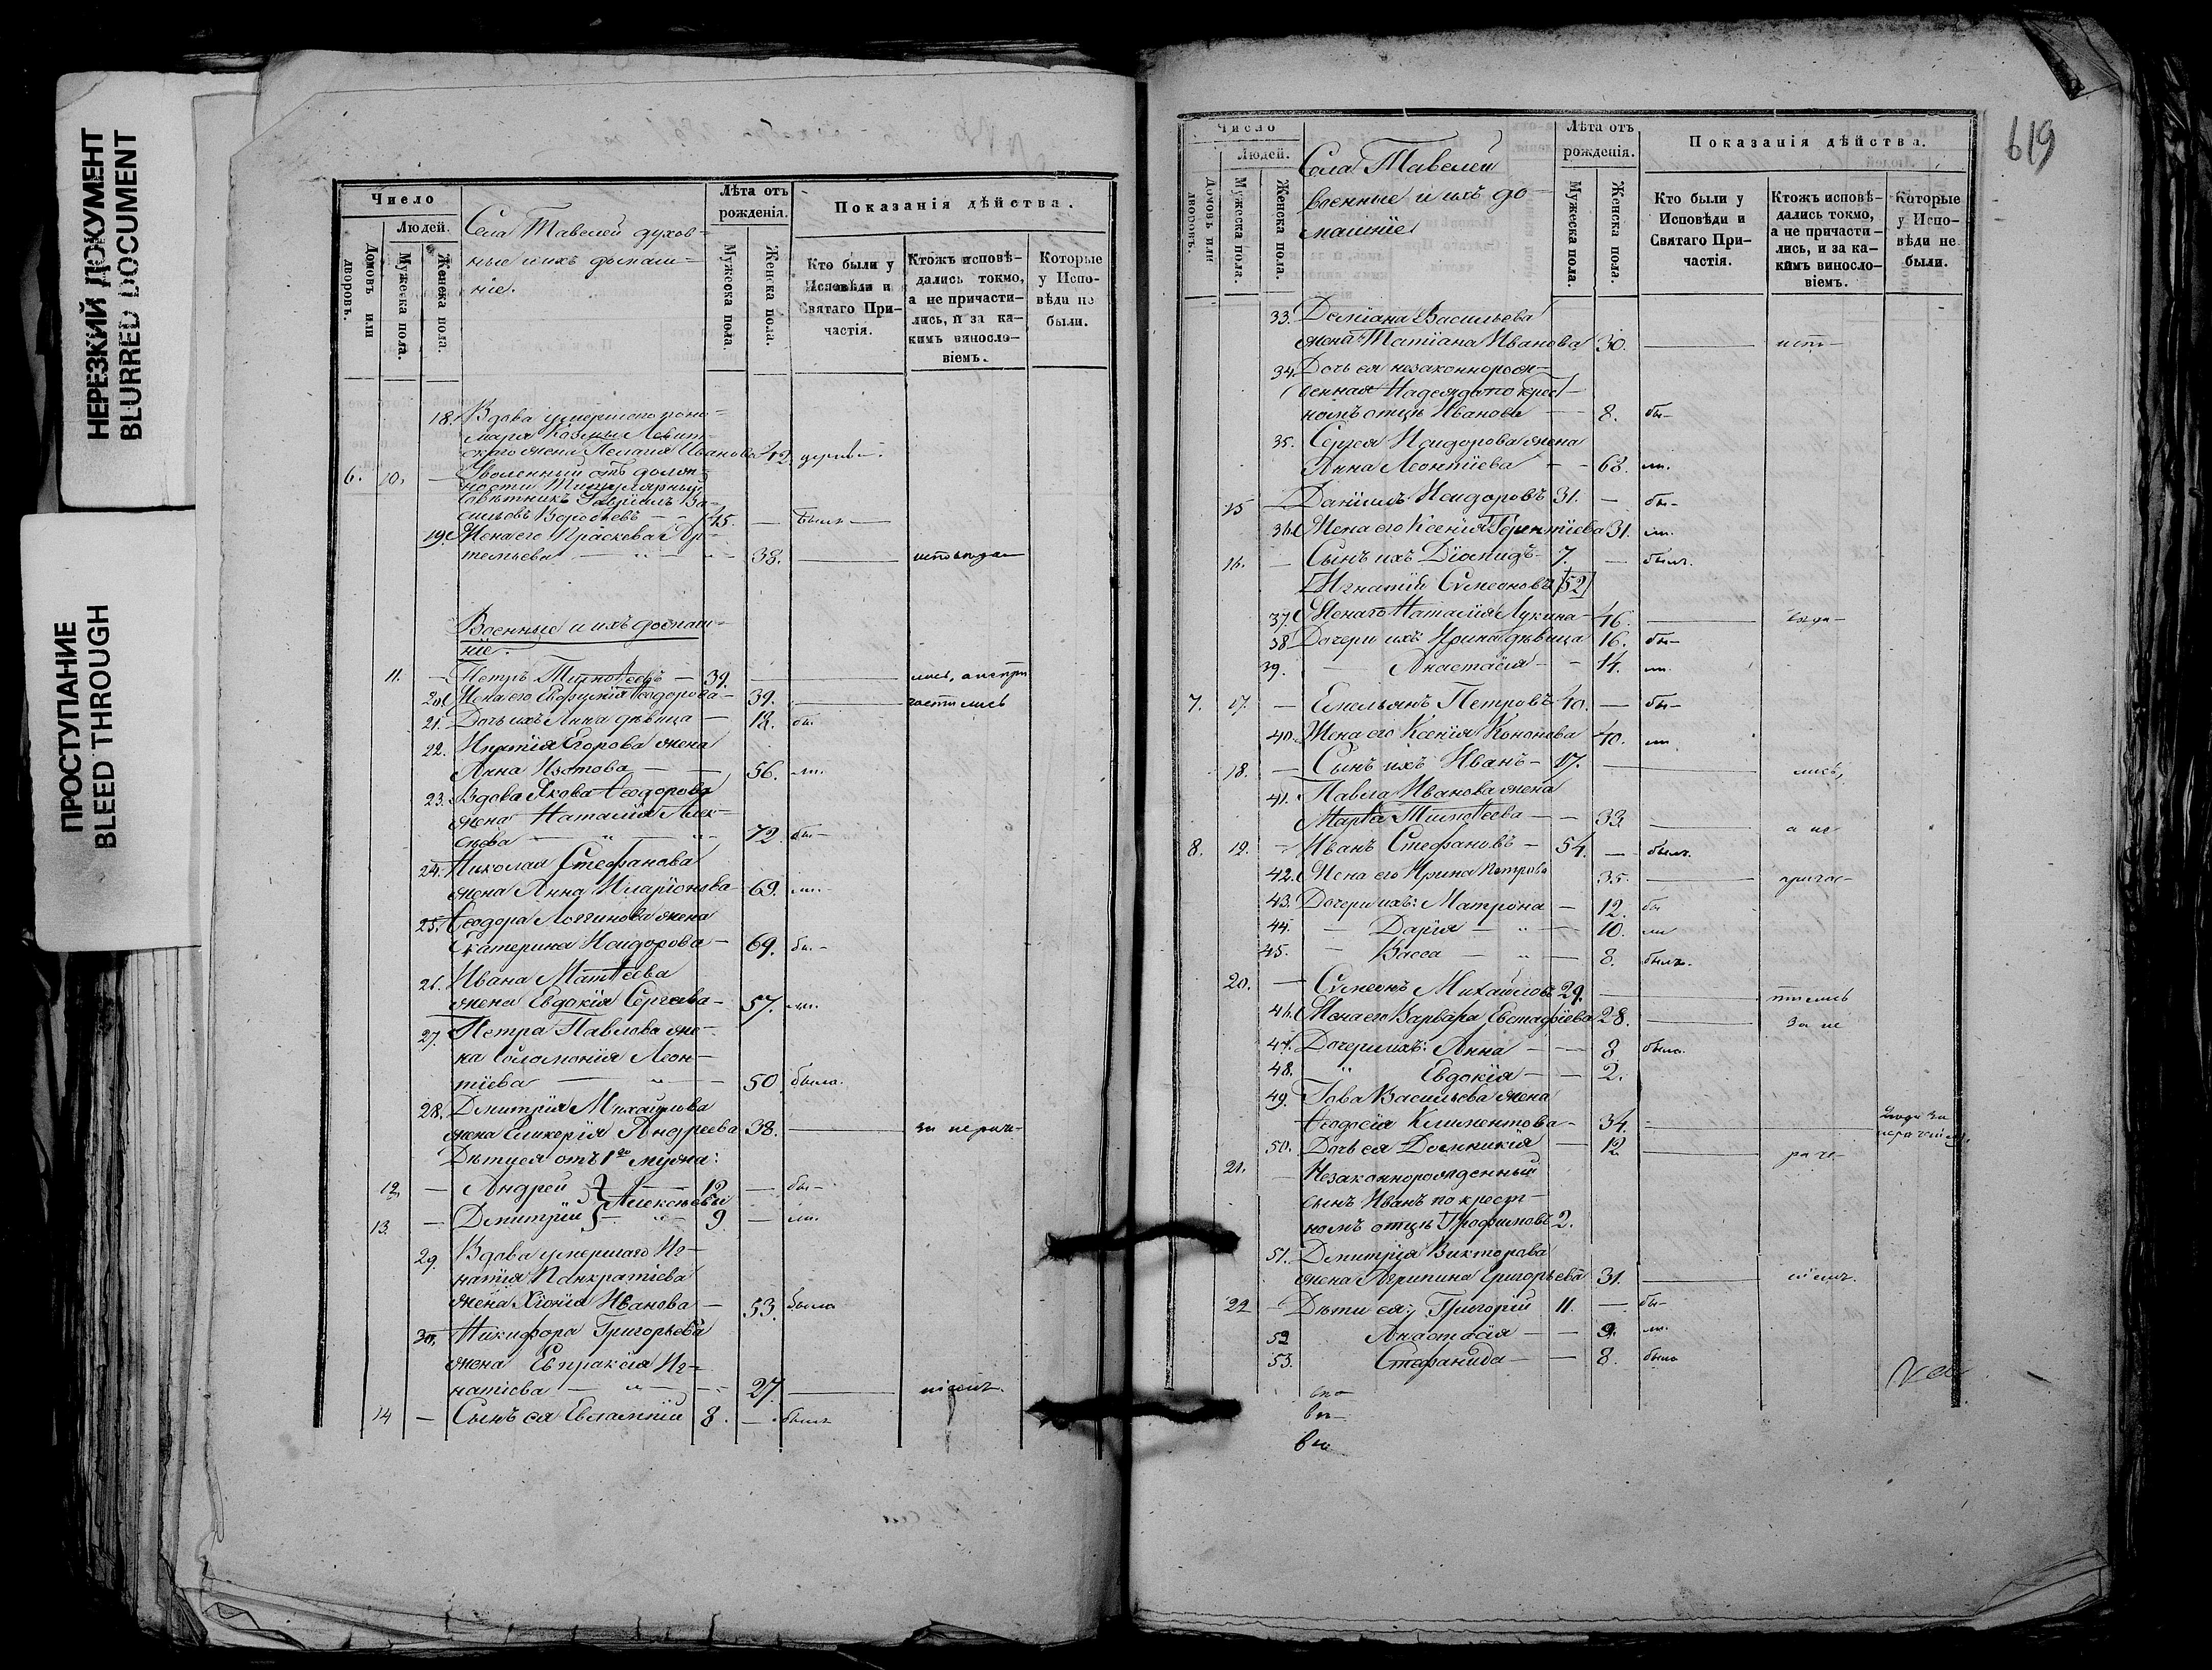 НЕРЕЗКИЙ ДОКУМЕНТ
BLURRED DOCUMENT
ПРОСТУПАНИЕ
BLEED THROUGH
Число
Людей.
Домовъ или дворовъ.
Мужеска пола.
Женска пола.
Села Тавелей духов-
ные и ихъ домаш-
ніе.
Лѣта отъ рожденія.
Мужеска пола.
Женска пола.
Показанія дѣйства.
Кто были у Исповѣди и Святаго При-частія.
Ктожъ исповѣ-дались токмо, а не причасти-лись, и за ка-кимъ винosло-віемъ.
Которые у Испо-вѣди не были.
18. Вдова умершаго поно-
маря Козмы Левит-
скаго жена Пелагія Иванова 42.
6. 10. — Уволенный отъ долж-
ности Титулярный
Совѣтникъ Гавріилъ Ва-
сильевъ Воробьевъ — 45. — былъ —
19. Жена его Параскева Ар-
темьева — " — 38. —
Военные и ихъ домаш-
ніе.
11. — Петръ Тимоѳеевъ — 39. —
20. Жена его Евфимія Ѳеодорова — 39. — частились
21. Дочь ихъ Анна дѣвица — 18. бы-
22. Ипатія Егорова жена
Анна Изотова — 56. ли.
23. Вдова Якова Ѳеодорова
жена Наталія Алек-
сѣева — " — 72. бы —
24. Николая Стефанова
жена Анна Иларіонова — 69. ли.
25. Ѳеодора Логгинова жена
Екатерина Исидорова — 69. бы. —
26. Ивана Матѳеева
жена Евдокія Сергѣева — 57. ли.
27. Петра Павлова же-
на Соломонія Леон-
тіева — " — 50 была.
28. Димитрія Михайлова
жена Гликерія Андреева 38. — за нерач-
Дѣти ея отъ 1го мужа:
12. — Андрей } — 12 — бы —
Алексѣевы
13. — Димитрій } — 9 — ли.
29. Вдова умершаго Иг-
натія Панкратіева
жена Хіонія Иванова — 53. была
30. Никифора Григорьева
жена Евпраксія Иг-
натіева — " — 27. — ніемъ.
14 — Сынъ ея Евлампій 8. — былъ
619
Число
Людей.
Домовъ или дворовъ.
Мужеска пола.
Женска пола.
Села Тавелей
военные и ихъ до-
машніе
Лѣта отъ рожденія.
Мужеска пола.
Женска пола.
Показанія дѣйства.
Кто были у Исповѣди и Святаго При-частія.
Ктожъ исповѣ-дались токмо, а не причасти-лись, и за ка-кимъ винosло-віемъ.
Которые у Испо-вѣди не были.
33. Даміана Васильева
жена Татіана Иванова 30. — испо-
34. Дочь ея незаконнорож-
денная Надежда по крест-
номъ отцѣ Иванова — 8. бы —
35. Сергѣя Исидорова жена
Анна Леонтіева — 68. ли.
15 — Даніилъ Исидоровъ 31. — бы —
36. Жена его Ксенія Терентіева 31. ли.
16. — Сынъ ихъ Діомидъ 7. — былъ.
[Игнатій Сѵмеоновъ [52]
37. Жена его Наталія Лукина — 46. —
38 Дочери ихъ: Ирина дѣвица 16. бы —
39. — Анастасія — 14. ли.
7. 17. — Емельянъ Петровъ 40. — бы —
40. Жена его Ксенія Кононова 40. ли
18. — Сынъ ихъ Иванъ — 17. — лись,
41. Павла Иванова жена
Марѳа Тимоѳеева — 33. — а не
8. 19. — Иванъ Стефановъ — 54. — былъ.
42. Жена его Ирина Петрова 35. — причас-
43. Дочери ихъ: Матрона — 12. бы
44. — Дарія — " — 10. ли
45. — Васса — " — 8. были.
20. — Сѵмеонъ Михайловъ 29. — тились
46. Жена его Варвара Евстафіева 28. — за не
47. Дочери ихъ: Анна — 8. была.
48. " Евдокія — 2.
49. Іова Васильева жена
Ѳеодосія Климентова — 34. —
50. Дочь ея Домникія — 12 — раче-
21. — Незаконнорожденный
сынъ Иванъ по крест-
номъ отцѣ Трофимовъ 2.
51. Димитрія Викторова
жена Агрипина Григорьева 31. — ніемъ.
22 — Дѣти ея: Григорій 11. — бы —
52 Анастасія — 9. ли.
53. Стефанида — 8. была